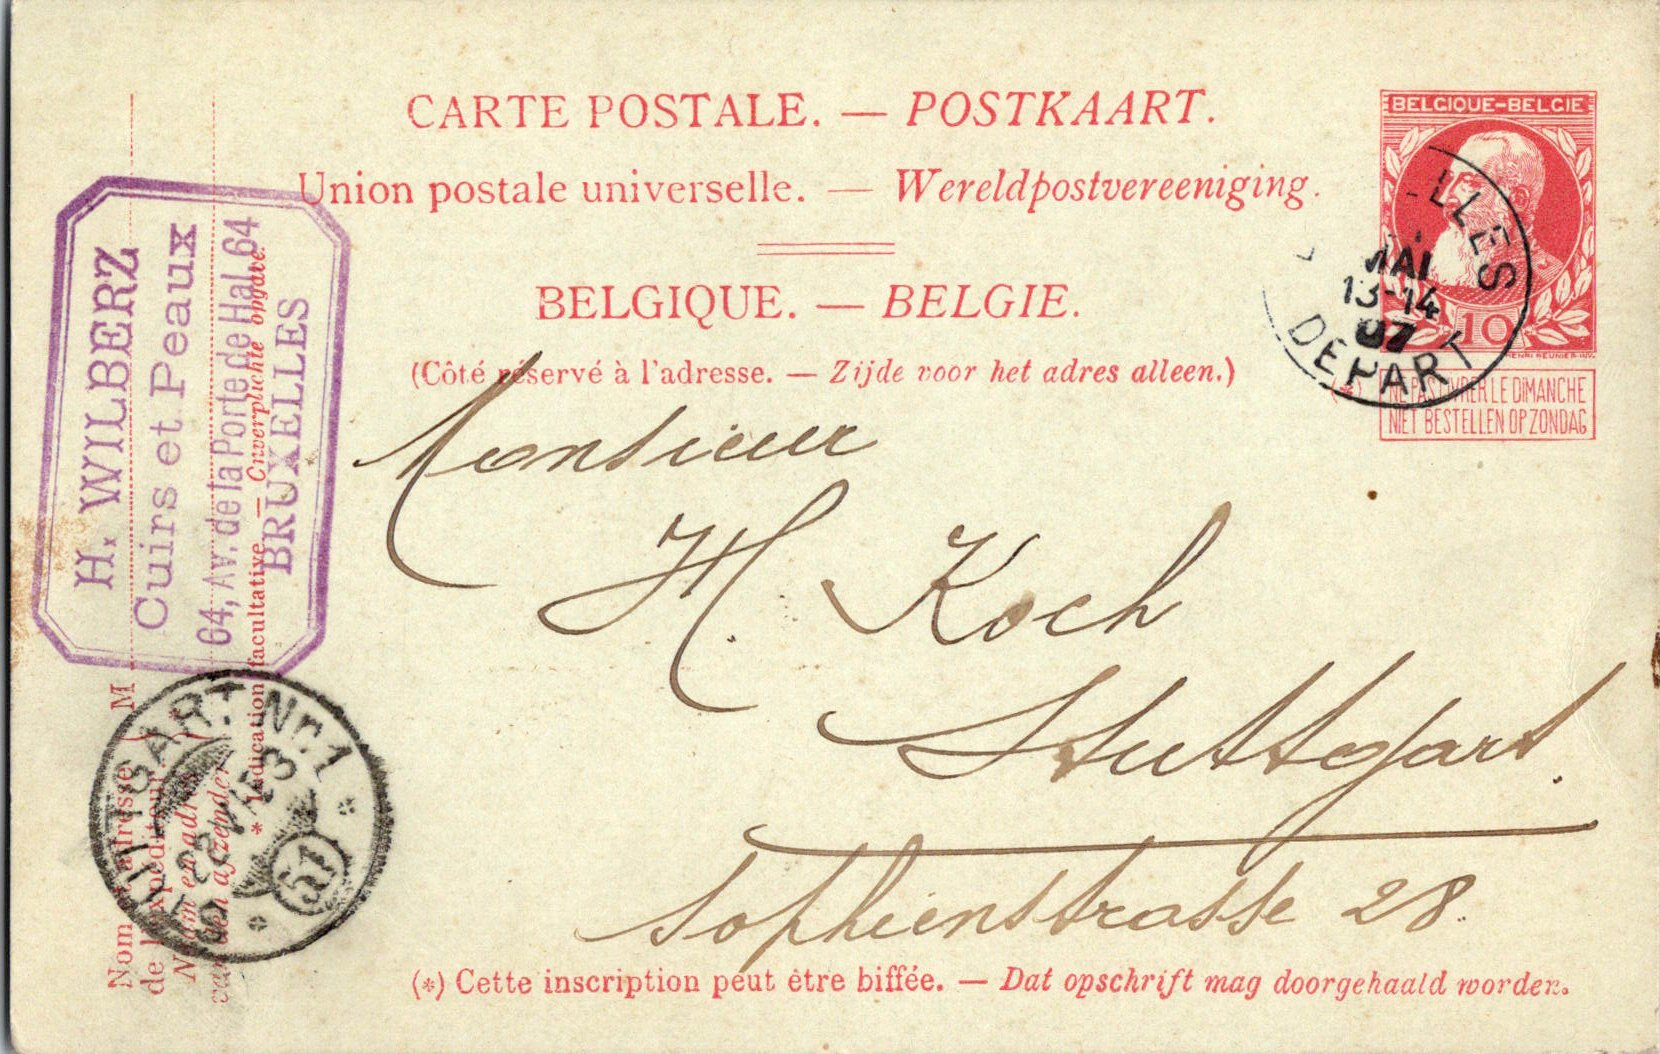 CARTE POSTALE. — POSTKAART.
Union postale universelle. — Wereldpostvereeniging.
BELGIQUE. — BELGIE.
(Côté réservé à l'adresse. — Zijde voor het adres alleen.)
BELGIQUE-BELGIE
10
HENRI MEUNIER INV.
(*) NE PAS LIVRER LE DIMANCHE
NIET BESTELLEN OP ZONDAG
MAI
13-14
07
DEPART
H. WILBERZ
Cuirs et Peaux
64, Av. de la Porte de Hal, 64
BRUXELLES
Monsieur
H. Koch
Stuttgart.
Sophienstrasse 28.
STUTTGART Nr. 1
51
Nom et adresse } M
de l'expéditeur
Naam en adres
van den afzender
* Indication facultative. — Onverplichte opgave.
(*) Cette inscription peut être biffée. — Dat opschrift mag doorgehaald worden.